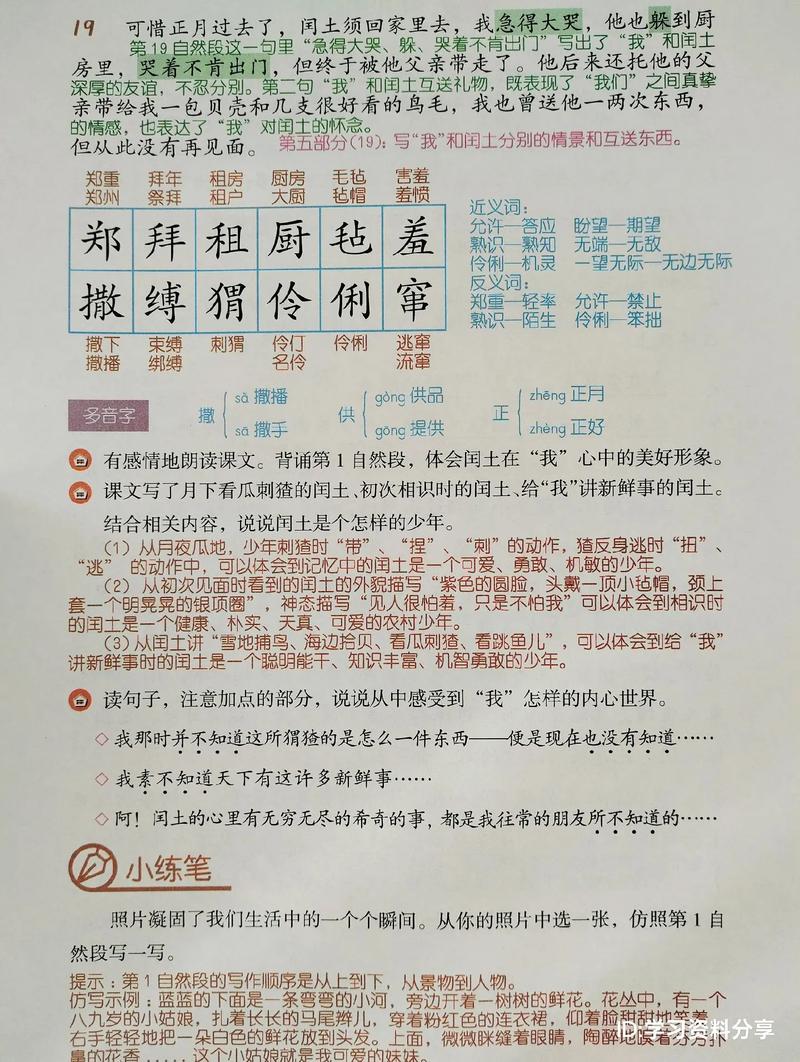 19 可惜正月过去了，闰土须回家里去，我急得大哭，他也躲到厨
第19自然段这一句里“急得大哭、躲、哭着不肯出门”写出了“我”和闰土
房里，哭着不肯出门，但终于被他父亲带走了。他后来还托他的父
深厚的友谊，不忍分别。第二句“我”和闰土互送礼物，既表现了“我们”之间真挚
亲带给我一包贝壳和几支很好看的鸟毛，我也曾送他一两次东西，
的情感，也表达了“我”对闰土的怀念。
但从此没有再见面。 第五部分(19)：写“我”和闰土分别的情景和互送东西。
郑重 拜年 租房 厨房 毛毡 害羞
郑州 祭拜 租户 大厨 毡帽 羞愤
郑 拜 租 厨 毡 羞
撒 缚 猬 伶 俐 窜
撒下 束缚 刺猬 伶仃 伶俐 逃窜
撒播 绑缚 名伶 流窜
近义词：
允许—答应 盼望—期望
熟识—熟知 无端—无故
伶俐—机灵 一望无际—无边无际
反义词：
郑重—轻率 允许—禁止
熟识—陌生 伶俐—笨拙
多音字
撒 sǎ 撒播 sā 撒手
供 gòng 供品 gōng 提供
正 zhēng 正月 zhèng 正好
有感情地朗读课文。背诵第1自然段，体会闰土在“我”心中的美好形象。
课文写了月下看瓜刺猹的闰土、初次相识时的闰土、给“我”讲新鲜事的闰土。
结合相关内容，说说闰土是个怎样的少年。
（1）从月夜瓜地，少年刺猹时“带”、“捏”、“刺”的动作，猹反身逃时“扭”、
“逃” 的动作中，可以体会到记忆中的闰土是一个可爱、勇敢、机敏的少年。
（2）从初次见面时看到的闰土的外貌描写“紫色的圆脸，头戴一顶小毡帽，颈上
套一个明晃晃的银项圈”，神态描写“见人很怕羞，只是不怕我”可以体会到相识时
的闰土是一个健康、朴实、天真、可爱的农村少年。
（3）从闰土讲“雪地捕鸟、海边拾贝、看瓜刺猹、看跳鱼儿”，可以体会到给“我”
讲新鲜事时的闰土是一个聪明能干、知识丰富、机智勇敢的少年。
读句子，注意加点的部分，说说从中感受到“我”怎样的内心世界。
◇ 我那时并不知道这所猬猹的是怎么一件东西——便是现在也没有知道……
◇ 我素不知道天下有这许多新鲜事……
◇ 阿！闰土的心里有无穷无尽的希奇的事，都是我往常的朋友所不知道的……
小练笔
照片凝固了我们生活中的一个个瞬间。从你的照片中选一张，仿照第1自
然段写一写。
提示：第1自然段的写作顺序是从上到下，从景物到人物。
仿写示例：蓝蓝的下面是一条弯弯的小河，旁边开着一树树的鲜花。花丛中，有一个
八九岁的小姑娘，扎着长长的马尾辫儿，穿着粉红色的连衣裙，仰着脸甜甜地笑着，
右手轻轻地把一朵白色的鲜花放到头发。上面，微微眯缝着眼睛，陶醉
鼻的花香……这个小姑娘就是我可爱的妹妹。
ID:学习资料分享